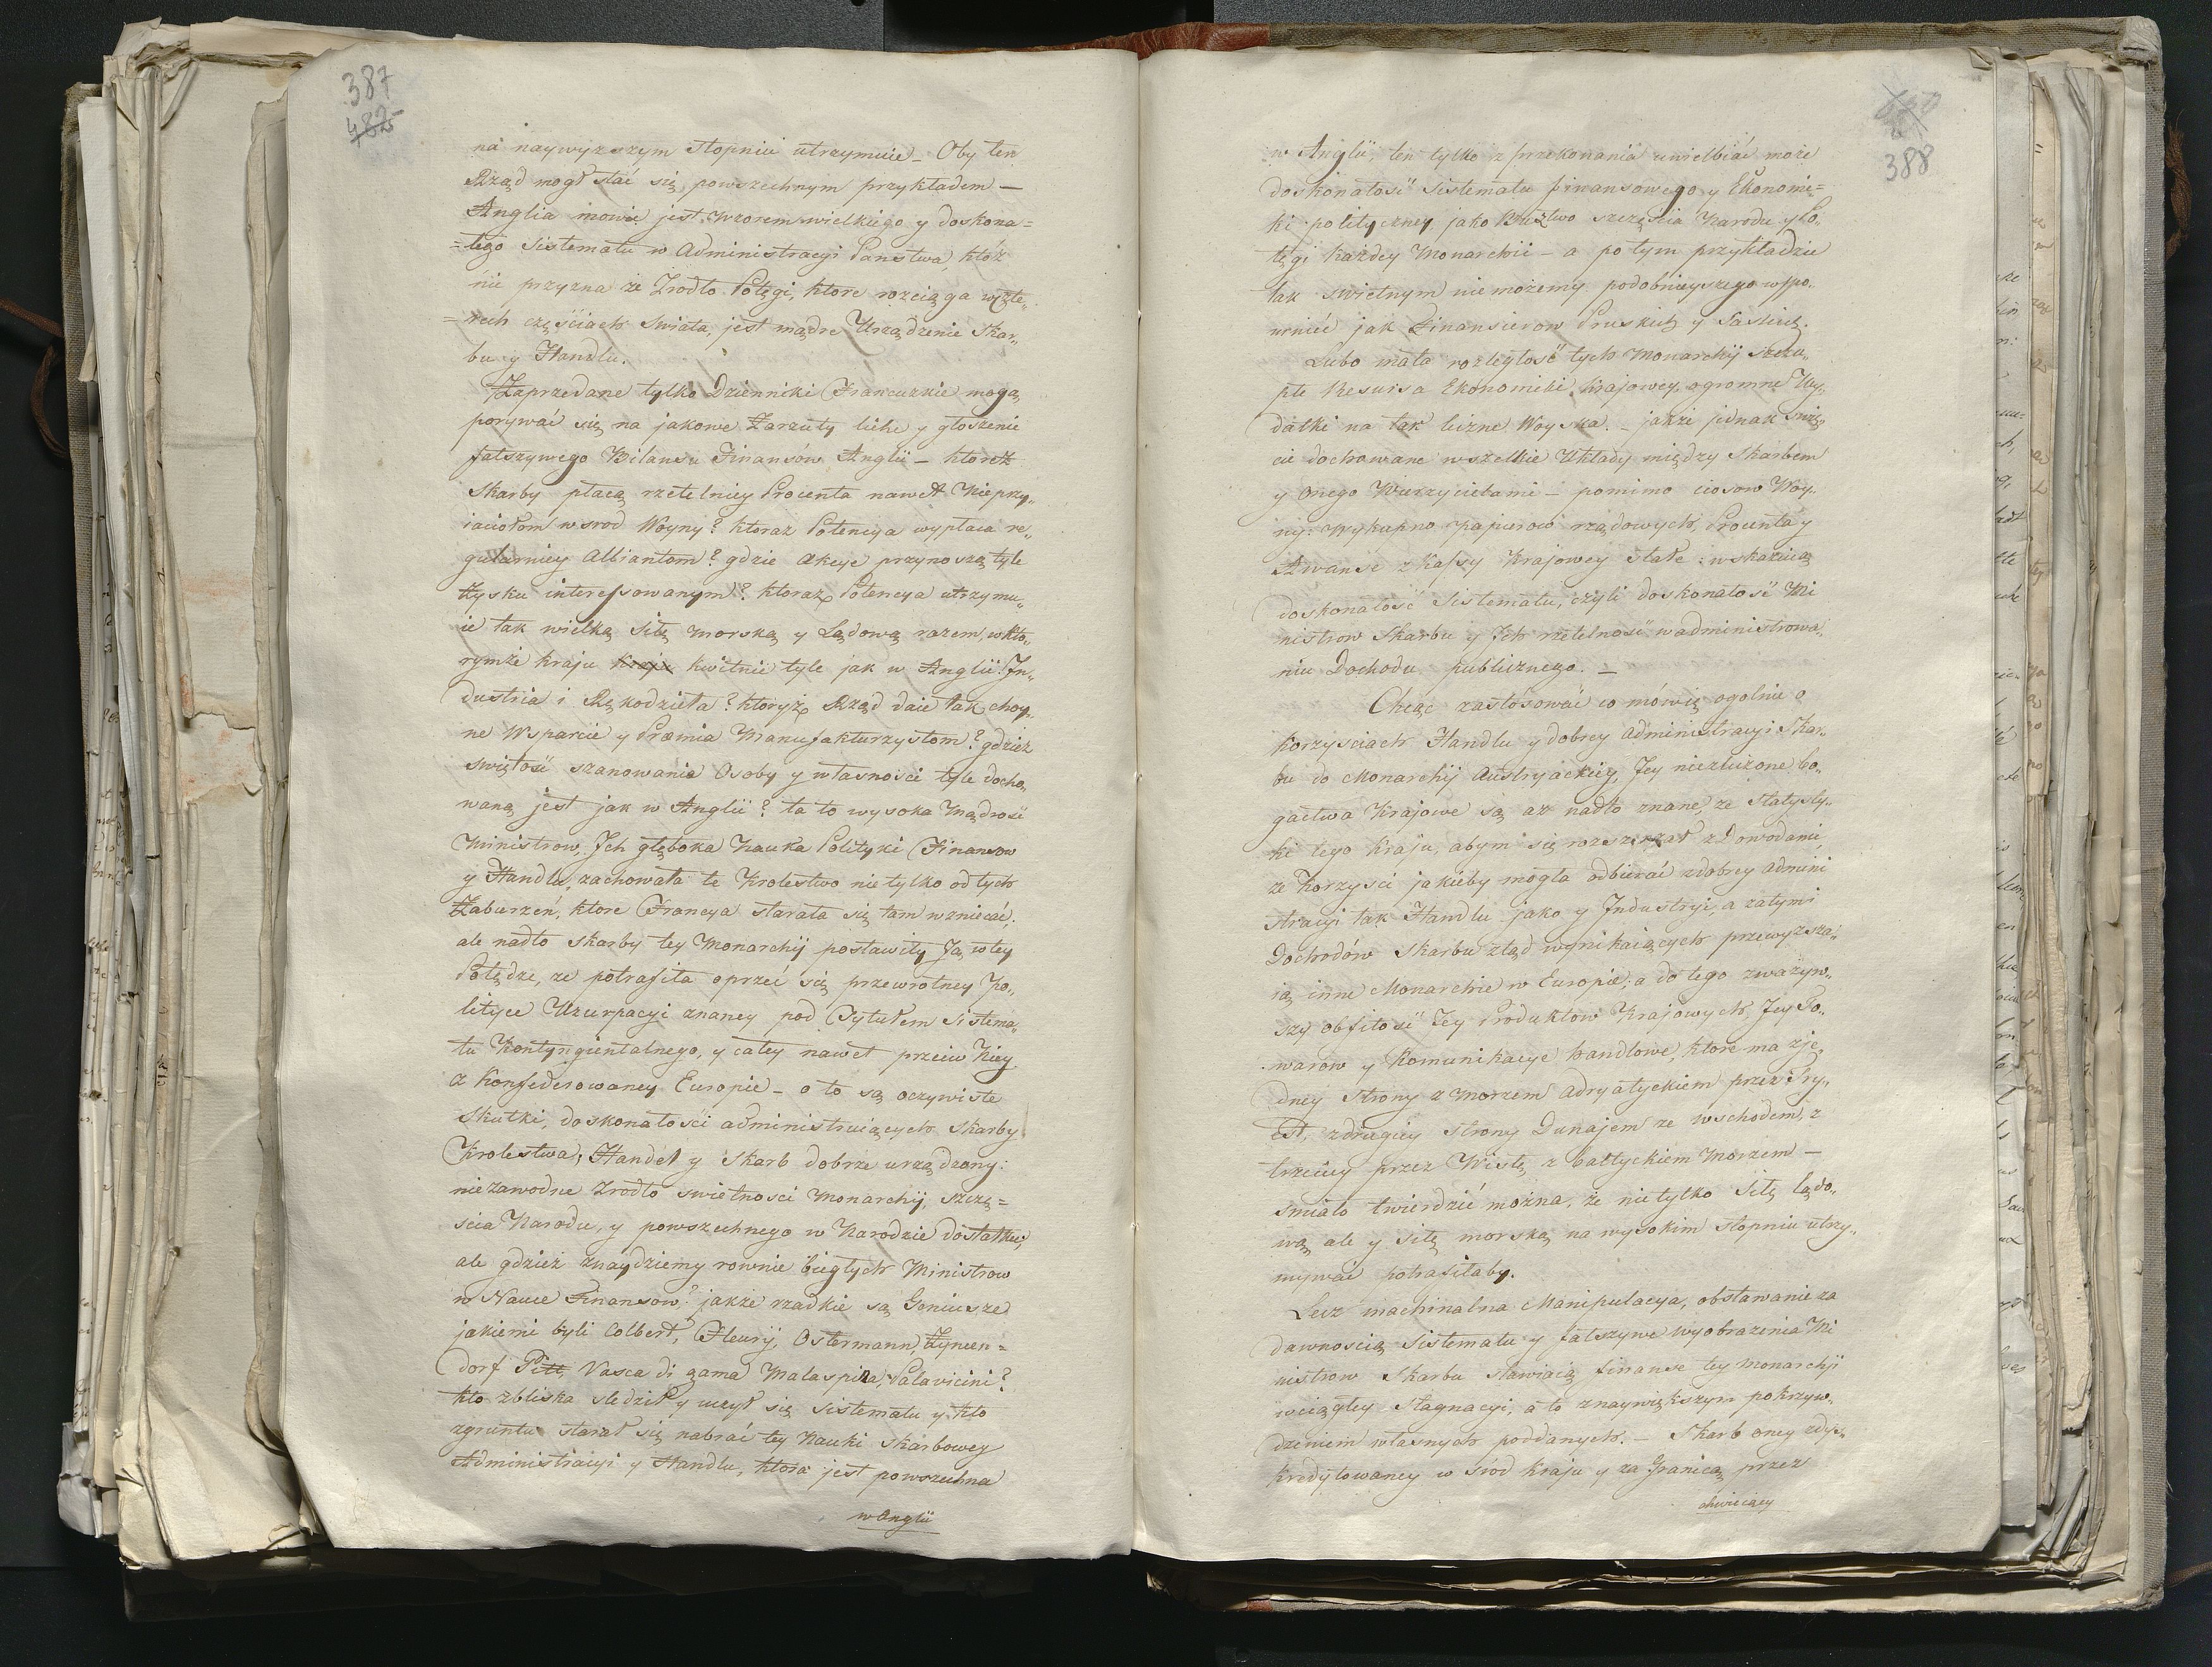 387
482
na naywyzszym stopniu utrzymuie_ Oby ten
Rząd mogł stać się powszechnym przykładem —
Anglia mowię jest wzorem wielkiego y doskona=
=łego Sistematu w Administracyi Panstwa, któż
nie przyzna że Zrodło Potęgi, ktore rozciąga w czte„
=rech częściach Swiata, jest mądre Urządzenie Skar„
bu y Handlu.
Zaprzedane tylko Dzienniki Francuzkie mogą
porywać się na jakowe Zarzuty liche y głoszenie
fałszywego Bilansu Finansów Anglii — ktoreż
Skarby płacą rzetelniey Procenta nawet Nieprzy„
iaciołom wsrod Woyny? ktoraż Potencya wypłaca re„
gularniey Alliantom? gdzie Akcye przynoszą tyle
Zysku interessowanym? ktoraż Potencya utrzymu„
ie tak wielką Siłę morską y Lądową razem, w kto„
rymże kraju kraju kwitnie tyle jak w Anglii In„
dustria i Rękodzieła? ktoryż Rząd daie tak choy„
ne Wsparcie y Præmia Manufakturzystom? gdzież
swiętość szanowania Osoby y własności tyle docho„
waną jest jak w Anglii? ta to wysoka Mądrość
Ministrow, Ich głęboka Nauka Polityki Finansow
y Handlu, zachowała te Krolestwo nie tylko od tych
Zaburzeń, ktore Francya starała się tam wzniecać;
ale nadto skarby tey Monarchij postawiły Ją w tey
Potędze, ze potrafiła oprzeć się przewrotney Po„
lityce Uzurpacyi znaney pod Tytułem Sistema„
tu Kontyngientalnego, y całey nawet przeciw Niey
z Konfederowaney Europie — o to są oczywiste
Skutki, doskonałości administruiących Skarby
Krolestwa; Handel y Skarb dobrze urządzony:
niezawodne Zrodło swietności Monarchij, szczę=
scia Narodu, y powszechnego w Narodzie dostatku;
ale gdzież znaydziemy rownie biegłych Ministrow
w Nauce Finansow? jakże rzadkie są Geniusze
jakiemi byli Colbert, Fleurij, Ostermann, Zyncen=
dorf Pitt, Vasca di gama Malaspina, Palavicini?
kto zbliska sledził y uczył się Sistematu y kto
zgruntu starał się nabrać tey Nauki Skarbowey
Administracyi y Handlu, ktora jest powszechna
w Anglii
388
w Anglii, ten tylko z przekonania uwielbiać może
doskonałość Sistematu finansowego y Ekonomi=
ki polityczney jako Bustwo szczęścia Narodu y Po„
tęgi każdey Monarchii — a po tym przykładzie
tak swietnym nie możemy podobnieyszego wspo„
mnieć jak Finansierow Pruskich y Saskich.
Lubo mała rozległość tych Monarchij Szczu„
płe Resursa Ekonomiki krajowey, ogromne Wy„
datki na tak liczne Woyska. — jakże jednak Swię„
cie dochowane wszelkie Układy między Skarbem
y Onego Wierzycielami — pomimo ciosow Woy„
ny: Wykupno papierow rządowych, Procenta y
Awanse z Kassy Krajowey stałe: wskazuią
doskonałość Sistematu, czyli doskonałość Mi
nistrow Skarbu y Ich rzetelność w administrowa„
niu Dochodu publicznego. —
Chcąc zastosować co mówię ogolnie o
korzysciach Handlu y dobrey Administracyi Skar„
bu do Monarchij Austryackiey, Jey niezliczone bo„
gactwa Krajowe są aż nadto znane, ze Statysty„
ki tego kraju, abym się rozszerzał z Dowodami,
ze korzysci jakieby mogła odbierać z dobrey Admini
stracyi tak Handlu jako y Industryi, a zatymi
Dochodów Skarbu ztąd wynikaiących przewyzsza„
ią inne Monarchie w Europie; a do tego zwazyw„
szy obfitość Jey Produktow Krajowych, Jey To„
warow y Komunikacye handlowe, ktore ma z je„
dney Strony z morzem Adryatyckiem przez Try„
est, zdrugiey strony Dunajem ze wschodem, z
trzeciey przez Wisłę z bałtyckiem Morzem —
smiało twierdzić można, że nie tylko Siłę lądo„
wą ale y Siłę morską na wysokim stopniu utrzy„
mywać potrafiłaby.
Lecz machinalna Manipulacya, obstawanie za
dawnością Sistematu y fałszywe wyobrazenia Mi
nistrow Skarbu stawiaią finanse tey Monarchij
wciągłey Stagnacyi, a to znaywiększym pokrzyw„
dzeniem własnych poddanych. — Skarb oney zdys„
kredytowaney w środ kraju y za Granicą przez
chwieiący